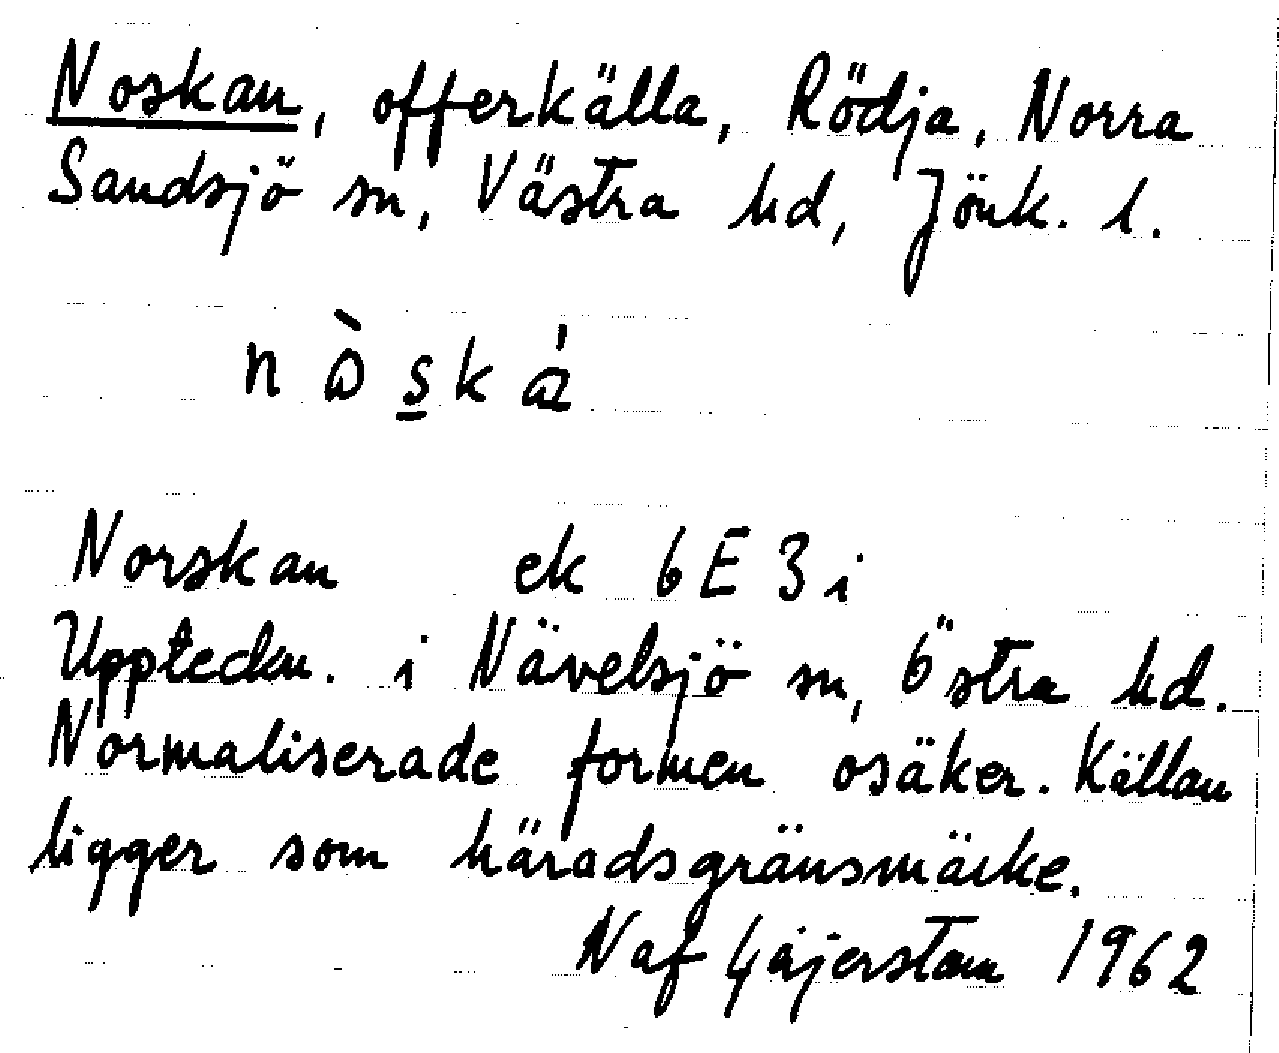 Noskan, offerkälla, Rödja, Norra
Sandsjö sn, Västra hd, Jönk. l.
Norskan ek 6E3i
Uppteckn. i Nävelsjö sn, Östra hd.
Normaliserade formen osäker. Källan
ligger som häradsgränsmärke.
Naf 1962